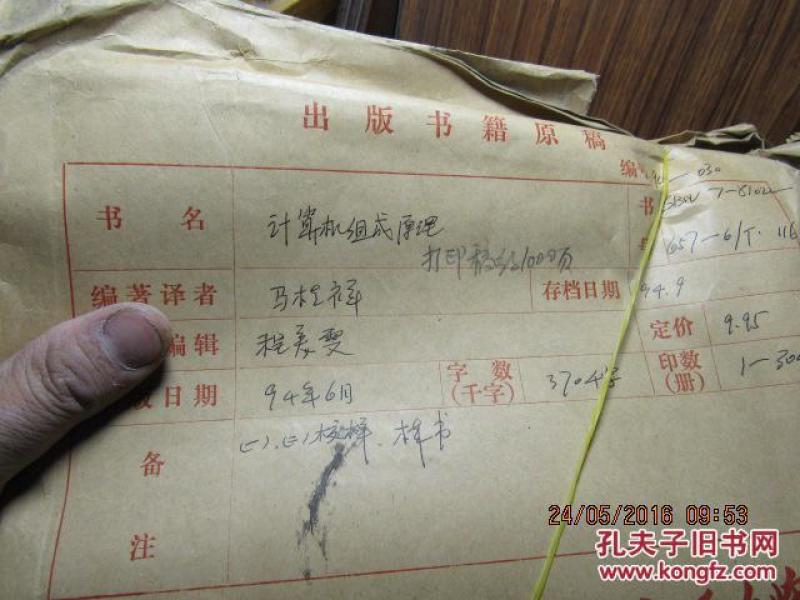 出版书籍原稿
编 030
书名 计算机组成原理 书
打印稿约1000页
编著译者 马桂祥 存档日期 94.9
编辑 定价 9.95
日期 94年6月 字数(千字) 370千字 印数(册) 1-300
备注 (一)、(二)校样、样书
24/05/2016 09:53
孔夫子旧书网
www.kongfz.com